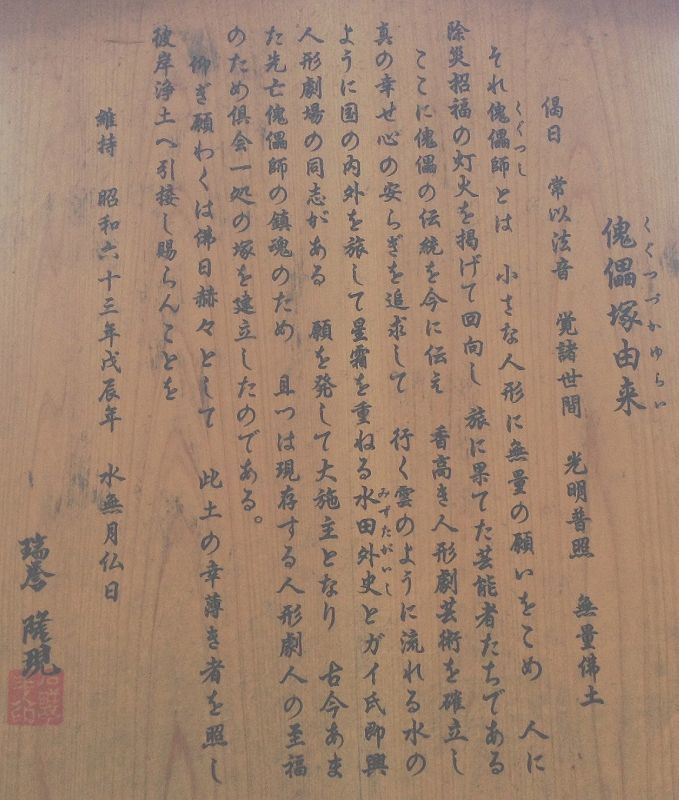 くぐつづかゆらい
傀儡塚由来
偈曰 常以法音 覚諸世間 光明普照 無量佛土
くぐつし
それ傀儡師とは 小さな人形に無量の願いをこめ 人に
除災招福の灯火を掲げて回向し 旅に果てた芸能者たちである
ここに傀儡の伝統を今に伝え 香高き人形劇芸術を確立し
真の幸せ心の安らぎを追求して 行く雲のように流れる水の
みずたがいし
ように国の内外を旅して星霜を重ねる水田外史とガイ氏即興
人形劇場の同志がある 願を発して大施主となり 古今あま
た先亡傀儡師の鎮魂のため 且つは現存する人形劇人の至福
のため倶会一処の塚を建立したのである。
仰ぎ願わくは佛日赫々として 此土の幸薄き者を照し
彼岸浄土へ引接し賜らんことを
維持 昭和六十三年戊辰年 水無月仏日
瑞誉 隆現